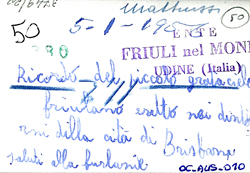 Matteus
50
50
5-1-195
390
ENTE
FRIULI nel MON
UDINE (Italia)
Ricordo del piccolo gratacielo
friulano eretto nei dinto
rni della cità di Brisbane
saluti alla furlane
OC-AUS-010